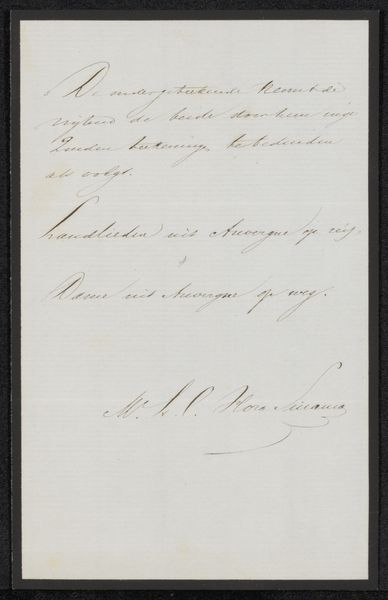 De ondergeteekende neemt de
vrijheid de beide door hem inge
zonden teekening te beduiden
als volgt.
Landlieden uit Auvergne op reis,
Dame uit Auvergne op weg.
Mr. L. C. Hora Siccama